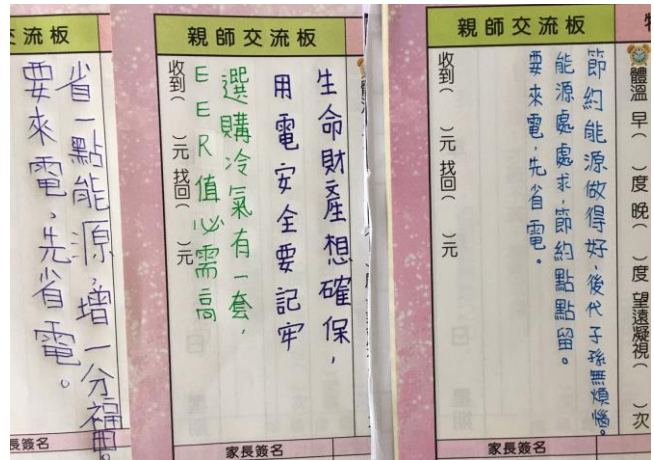 交流板
省一點能源，增一分福田。
要來電，先省電。
長簽名
親師交流板
生命財產想確保，
用電安全要記牢
選購冷氣有一套，
EER值必需高
收到（　）元 找回（　）元
家長簽名
親師交流板
體溫 早（　）度 晚（　）度 望遠凝視（　）次
節約能源做得好，後代子孫無煩惱。
能源處處求，節約點點留。
要來電，先省電。
收到（　）元 找回（　）元
家長簽名